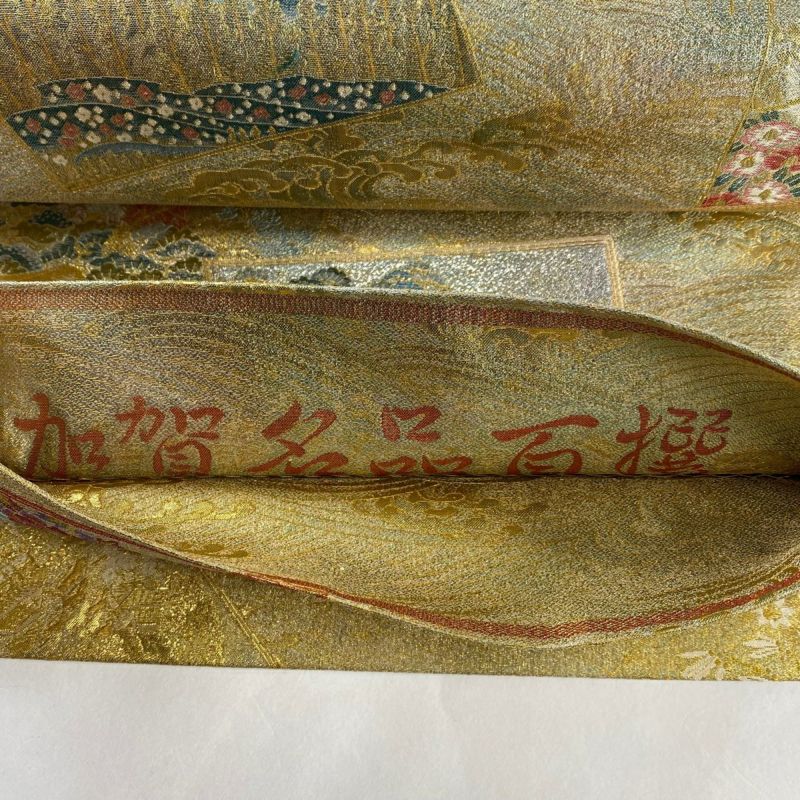 加賀名品百撰